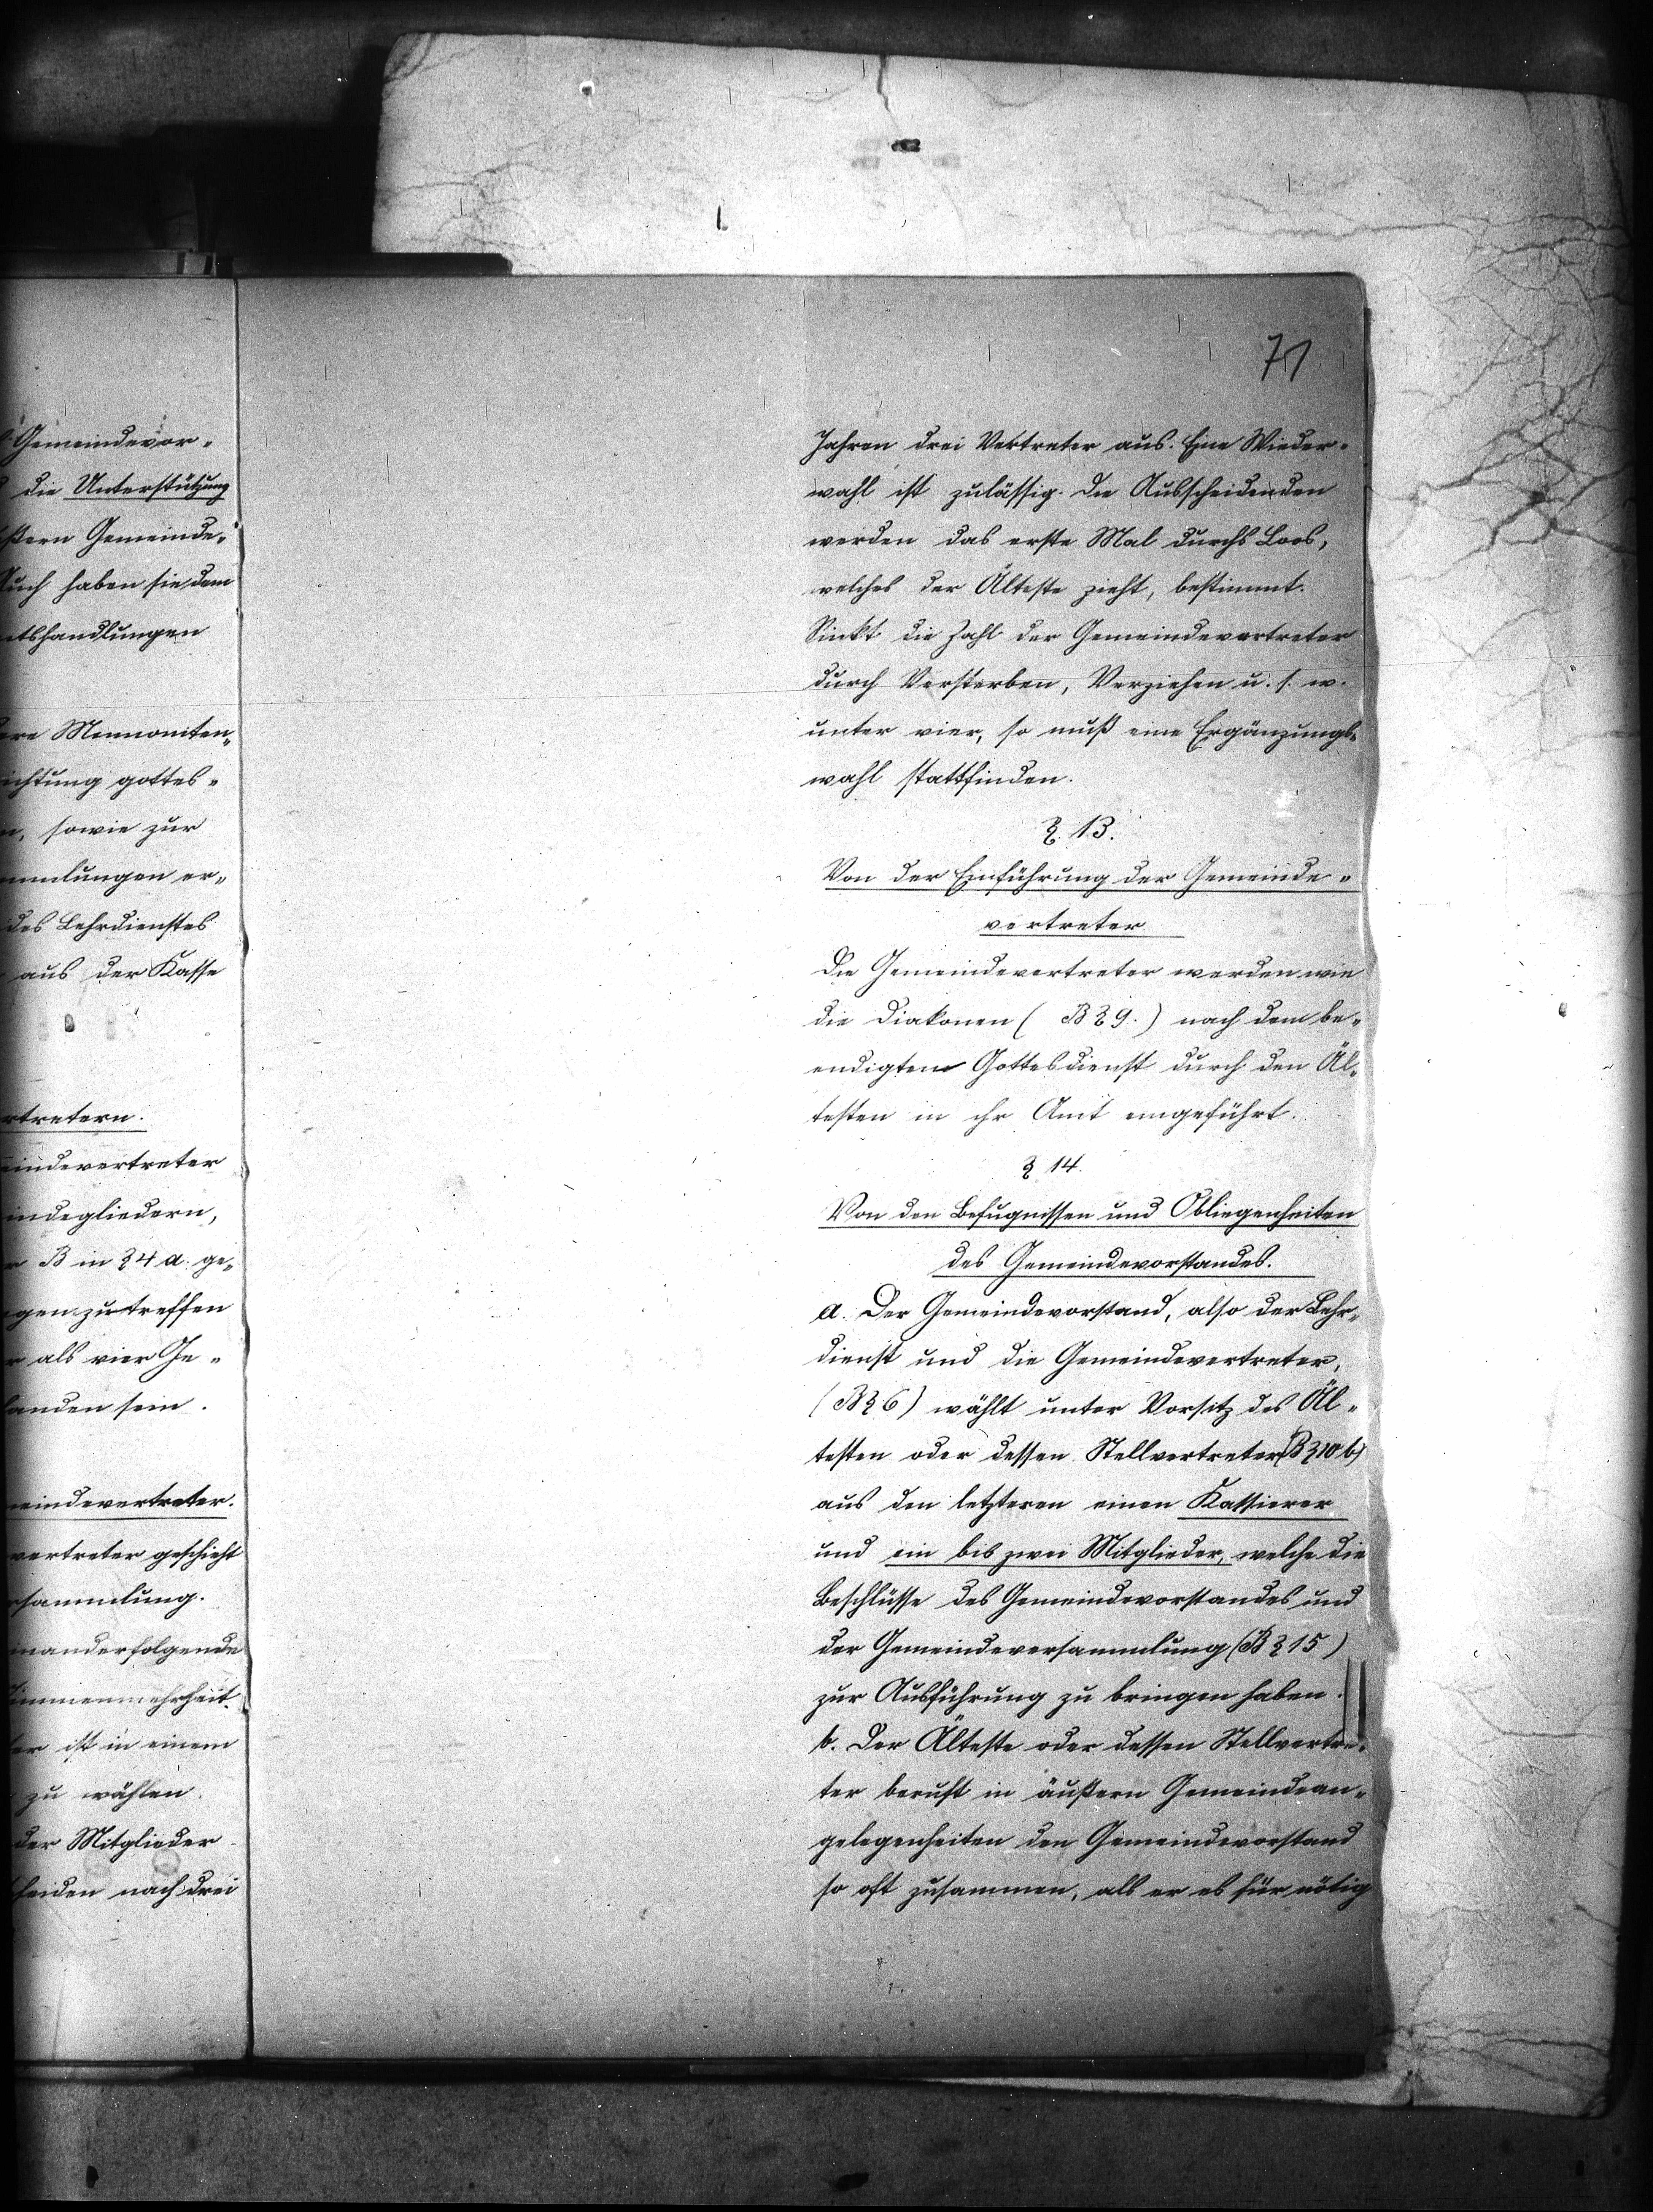 Gemeindevor-
die Unterstützung
ßern Gemeinde-
Auch haben sie dem
etshandlungen
ere Mennoniten-
ichtung gottes-
n, sowie zur
mmlungen er-
des Lehrdienstes
aus der Kasse
rtretern.
eindevertreter
indegliedern,
r B in § 4 a. ge-
gen zutreffen
r als vier Ge-
anden sein.
eindevertreter.
vertreter geschieht
sammlung.
nanderfolgende
immenmehrheit.
er ist in einem
zu wählen.
der Mitglieder
heiden nach drei
71
Jahren drei Vertreter aus. Eine Wieder-
wahl ist zulässig. Die Ausscheidenden
werden das erste Mal durchs Loos,
welches der Älteste zieht, bestimmt.
Sinkt die Zahl der Gemeindevertreter
durch Versterben, Verziehen u. s. w.
unter vier, so muß eine Ergänzungs-
wahl stattfinden.
§. 13.
Von der Einführung der Gemeinde-
vertreter
Die Gemeindevertreter werden wie
die Diakonen ( B § 9. ) nach dem be-
endigten Gottesdienst durch den Äl-
testen in ihr Amt eingeführt.
§ 14.
Von den Befugnissen und Obliegenheiten
des Gemeindevorstandes.
a. Der Gemeindevorstand, also der Lehr-
dienst und die Gemeindevertreter,
(B § 6) wählt unter Vorsitz des Äl-
testen oder dessen Stellvertreter (B § 10 b)
aus den letzteren einen Kassierer
und ein bis zwei Mitglieder, welche die
Beschlüsse des Gemeindevorstandes und
der Gemeindeversammlung (B § 15)
zur Ausführung zu bringen haben.
b. Der Älteste oder dessen Stellvertre-
ter beruft in äußern Gemeindean-
gelegenheiten den Gemeindevorstand
so oft zusammen, als er es für nötig